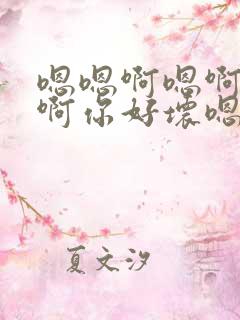 嗯嗯啊嗯啊
啊你好坏嗯
夏文汐